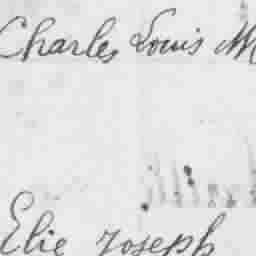 Charles Louis M
Elie Joseph